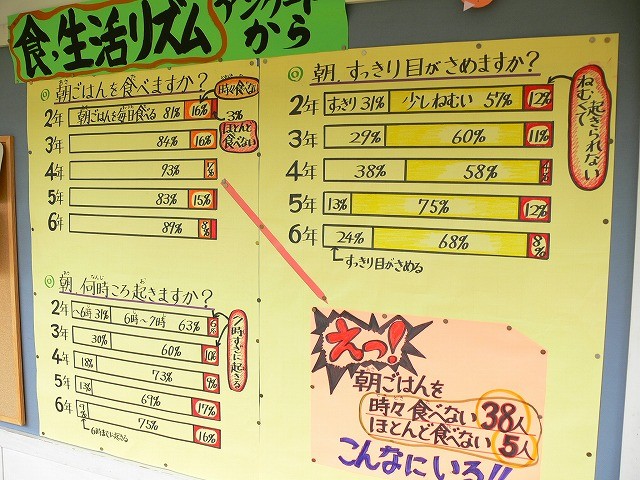 食・生活リズム
アンケート
から
◎朝ごはんを食べますか？
時々食べない
2年 朝ごはんを毎日食べる 81% 16%
3%
ほとんど食べない
3年 84% 16%
4年 93% 7%
5年 83% 15%
6年 89% 8%
◎朝、何時ころ起きますか？
2年 〜6時 31% 6時〜7時 63% 6%
7時すぎに起きる
3年 30% 60% 10%
4年 18% 73% 9%
5年 13% 69% 17%
6年 75% 16%
6時までに起きる
◎朝、すっきり目がさめますか？
2年 すっきり 31% 少しねむい 57% 12%
ねむくて起きられない
3年 29% 60% 11%
4年 38% 58%
5年 13% 75% 12%
6年 24% 68% 8%
すっきり目がさめる
えっ!
朝ごはんを
時々食べない 38人
ほとんど食べない 5人
こんなにいる!!